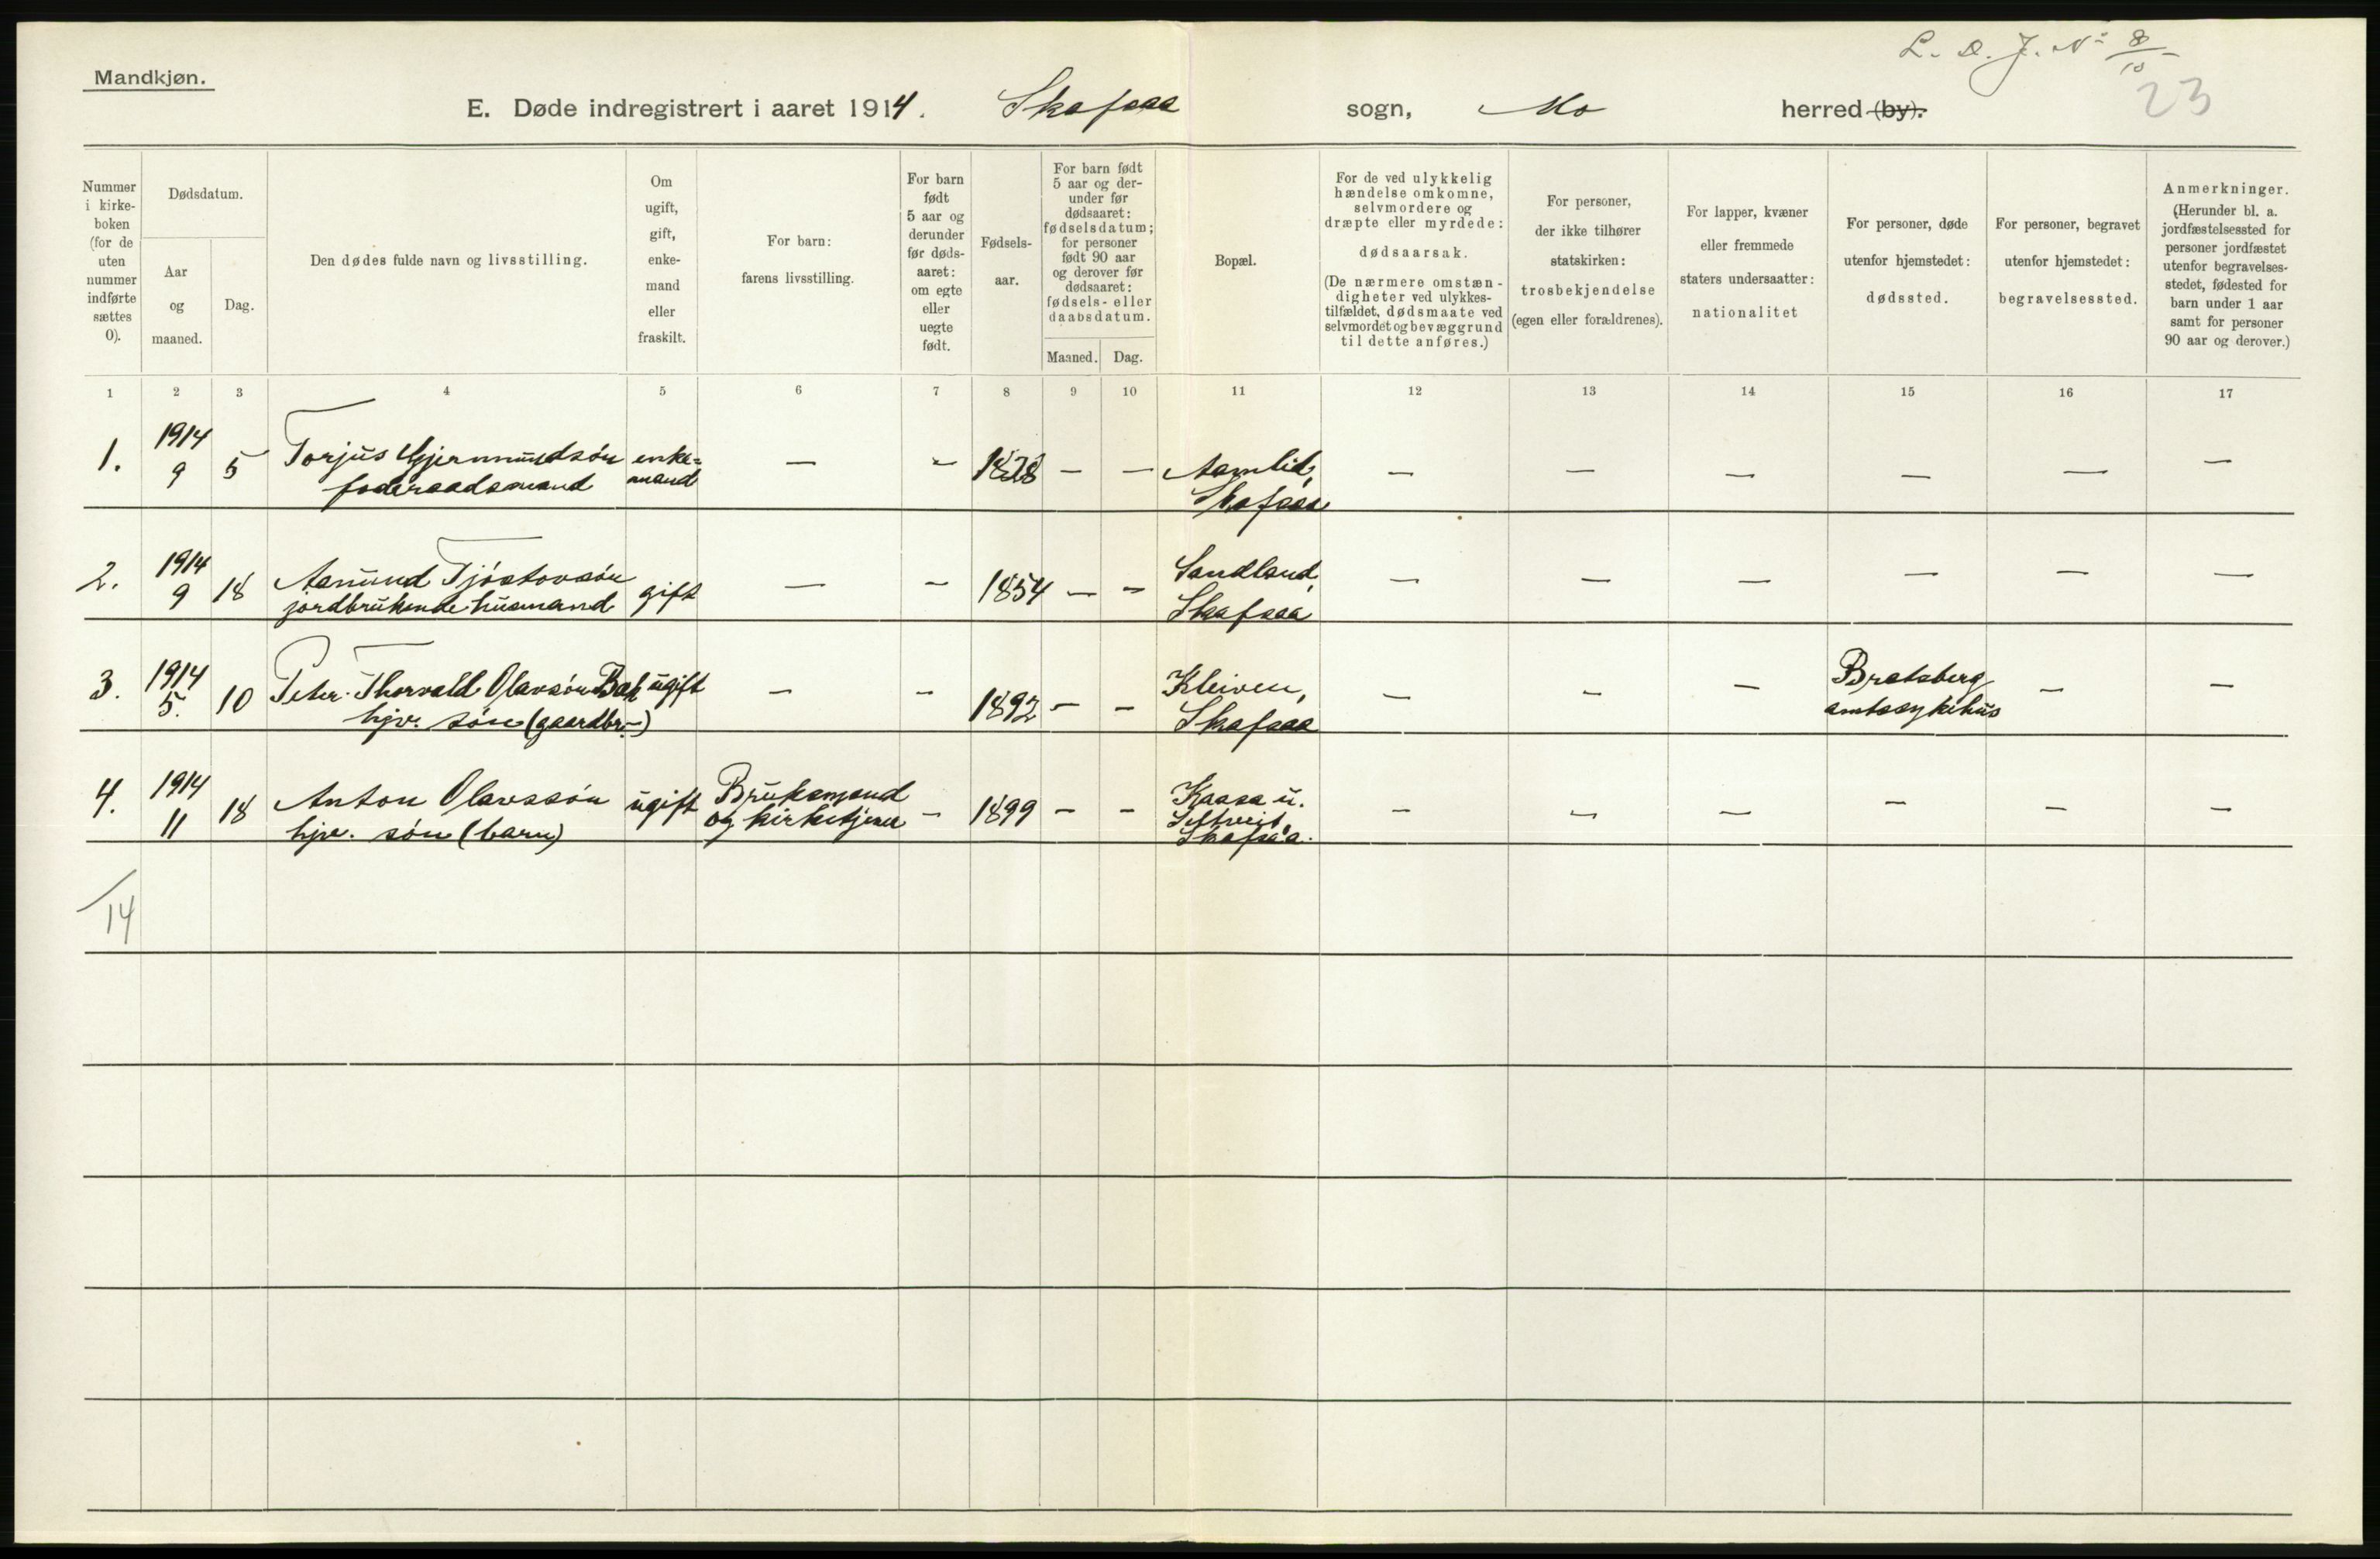 L. D. J. No 8/10
23
Mandkjøn.
E. Døde indregistrert i aaret 1914. Skafsaa sogn, Mo herred (by).
Nummer i kirke-boken (for de uten nummer indførte sættes 0).
Dødsdatum.
Aar og maaned.
Dag.
Den dødes fulde navn og livsstilling.
Om ugift, gift, enke-mand eller fraskilt.
For barn: farens livsstilling.
For barn født 5 aar og derunder før døds-aaret: om egte eller uegte født.
Fødsels-aar.
For barn født 5 aar og der-under før dødsaaret: fødselsdatum; for personer født 90 aar og derover før dødsaaret: fødsels- eller daabsdatum.
Maaned.
Dag.
Bopæl.
For de ved ulykkelig hændelse omkomne, selvmordere og dræpte eller myrdede: dødsaarsak. (De nærmere omstæn-digheter ved ulykkes-tilfældet, dødsmaate ved selvmordet og bevæggrund til dette anføres.)
For personer, der ikke tilhører statskirken: trosbekjendelse (egen eller forældrenes).
For lapper, kvæner eller fremmede staters undersaatter: nationalitet
For personer, døde utenfor hjemstedet: dødssted.
For personer, begravet utenfor hjemstedet: begravelsessted.
Anmerkninger. (Herunder bl. a. jordfæstelsessted for personer jordfæstet utenfor begravelses-stedet, fødested for barn under 1 aar samt for personer 90 aar og derover.)
1 2 3 4 5 6 7 8 9 10 11 12 13 14 15 16 17
1. 1914 9 5 Torjus Gjermundsøn enke=
foderaadsmand mand — — 1828 — — Aamlid,
Skafsaa — — — — — —
2. 1914 9 18 Aasmund Tjøstovsøn
jordbrukende husmand gift — — 1854 — — Sandland,
Skafsaa — — — — — —
3. 1914 5. 10 Peter Thorvald Olavsøn Bak ugift
hjv. søn (gaardbr.) — — 1892 — — Kleiven,
Skafsaa — — — Bratsberg
amtssykehus — —
4. 1914 11 18 Anton Olavssøn ugift Bruksmand
hjv. søn (barn) og kirketjener — 1899 — — Kaasa u.
Skafsaa. — — — — — —
14